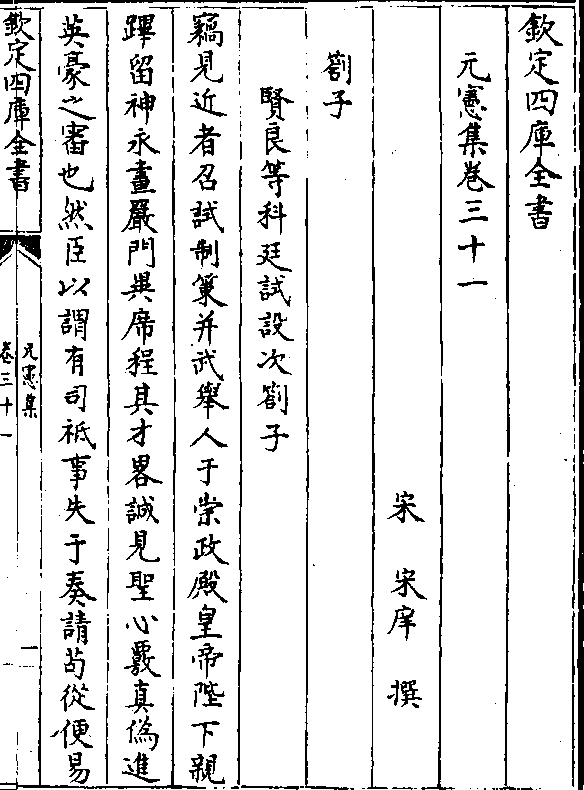 欽定四庫全書
元憲集卷三十一
宋 宋庠 撰
劄子
賢良等科廷試設次劄子
竊見近者召試制策并武舉人于崇政殿皇帝陛下親
蹕留神永晝嚴門與席程其才畧誠見聖心覈真偽進
英豪之審也然臣以謂有司祗事失于奏請苟從便易
欽定四庫全書
元憲集
卷三十一
一